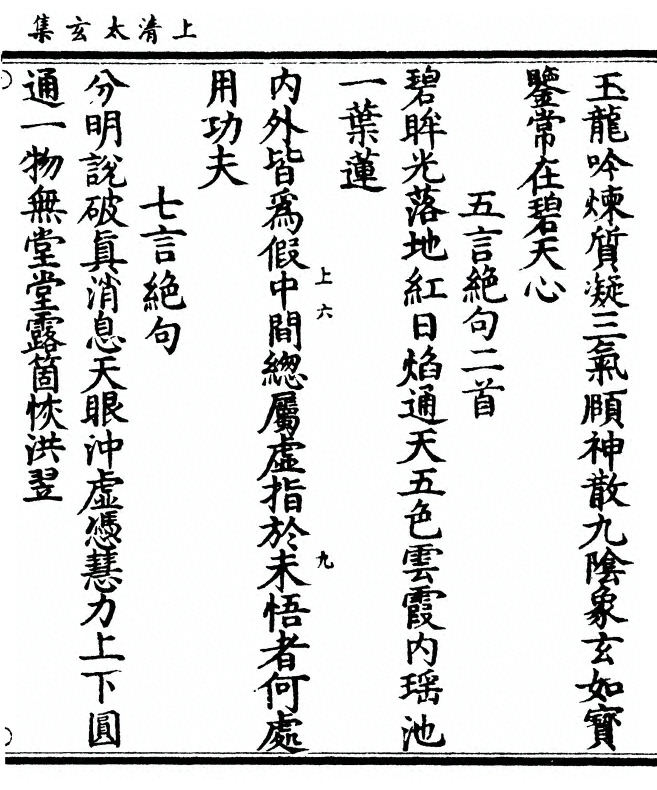 上清太玄集
玉龍吟煉質凝三氣頤神散九陰象玄如寶
鑒常在碧天心
五言絕句二首
碧眸光落地紅日焰通天五色雲霞内瑶池
一葉蓮
内外皆爲假中間總屬虛指於未悟者何處
用功夫
上六
九
七言絕句
分明說破真消息天眼沖虛憑慧力上下圓
通一物無堂堂露箇恢洪翌